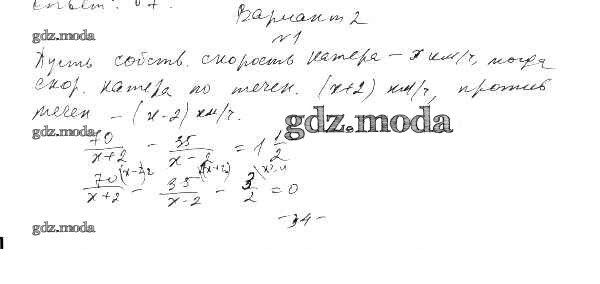 Ответ: 
Вариант 2
gdz.moda
№1
Пусть собств. скорость катера – x км/ч, тогда
скор. катера по течен. (x+2) км/ч, против
течен – (x-2) км/ч.
gdz.moda
gdz.moda
70/(x+2) - 35/(x-2) = 1 1/2
70/(x+2) - 35/(x-2) - 3/2 = 0
-34-
gdz.moda